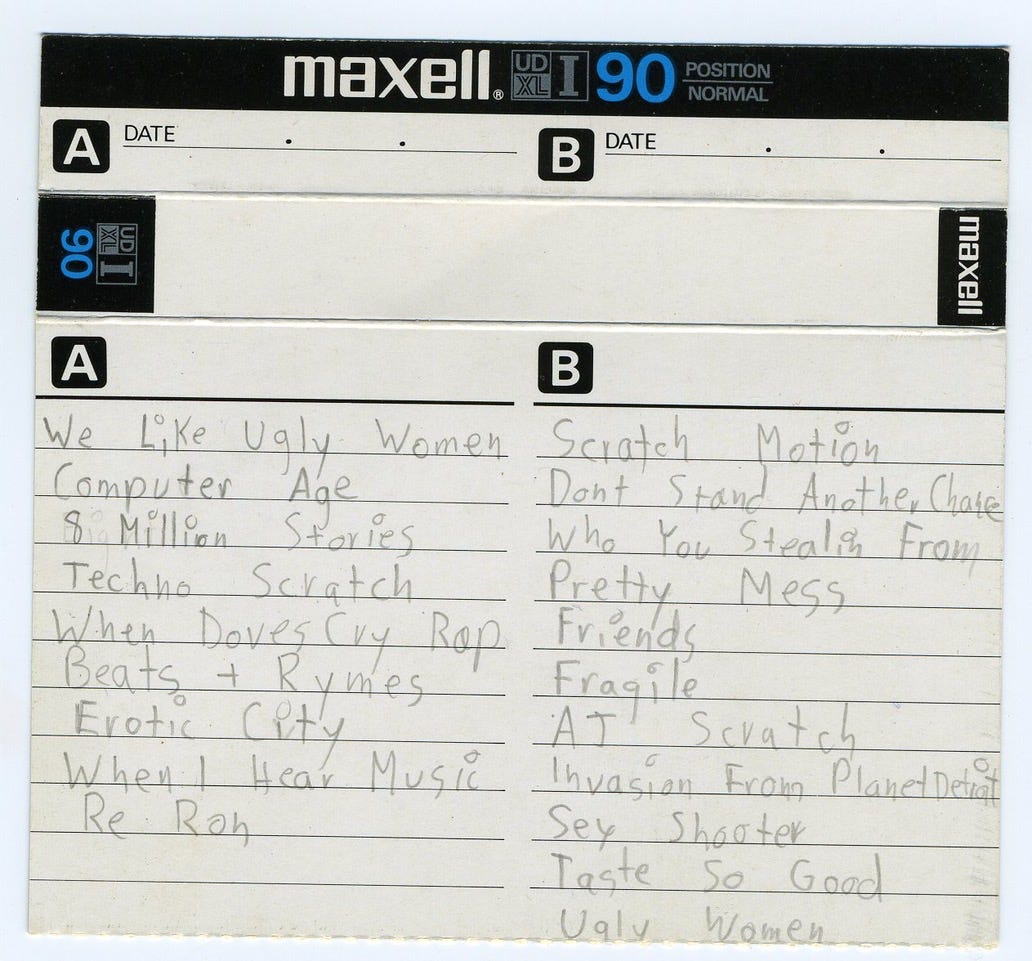 maxell® UD XL I 90 POSITION NORMAL
A DATE . .
B DATE . .
90 UD XL I
maxell
A
We Like Ugly Women
Computer Age
8 Million Stories
Techno Scratch
When Doves Cry Rap
Beats + Rymes
Erotic City
When I Hear Music
Re Ron
B
Scratch Motion
Dont Stand Another Chance
Who You Stealin From
Pretty Mess
Friends
Fragile
AJ Scratch
Invasion From Planet Detroit
Sex Shooter
Taste So Good
Ugly Women